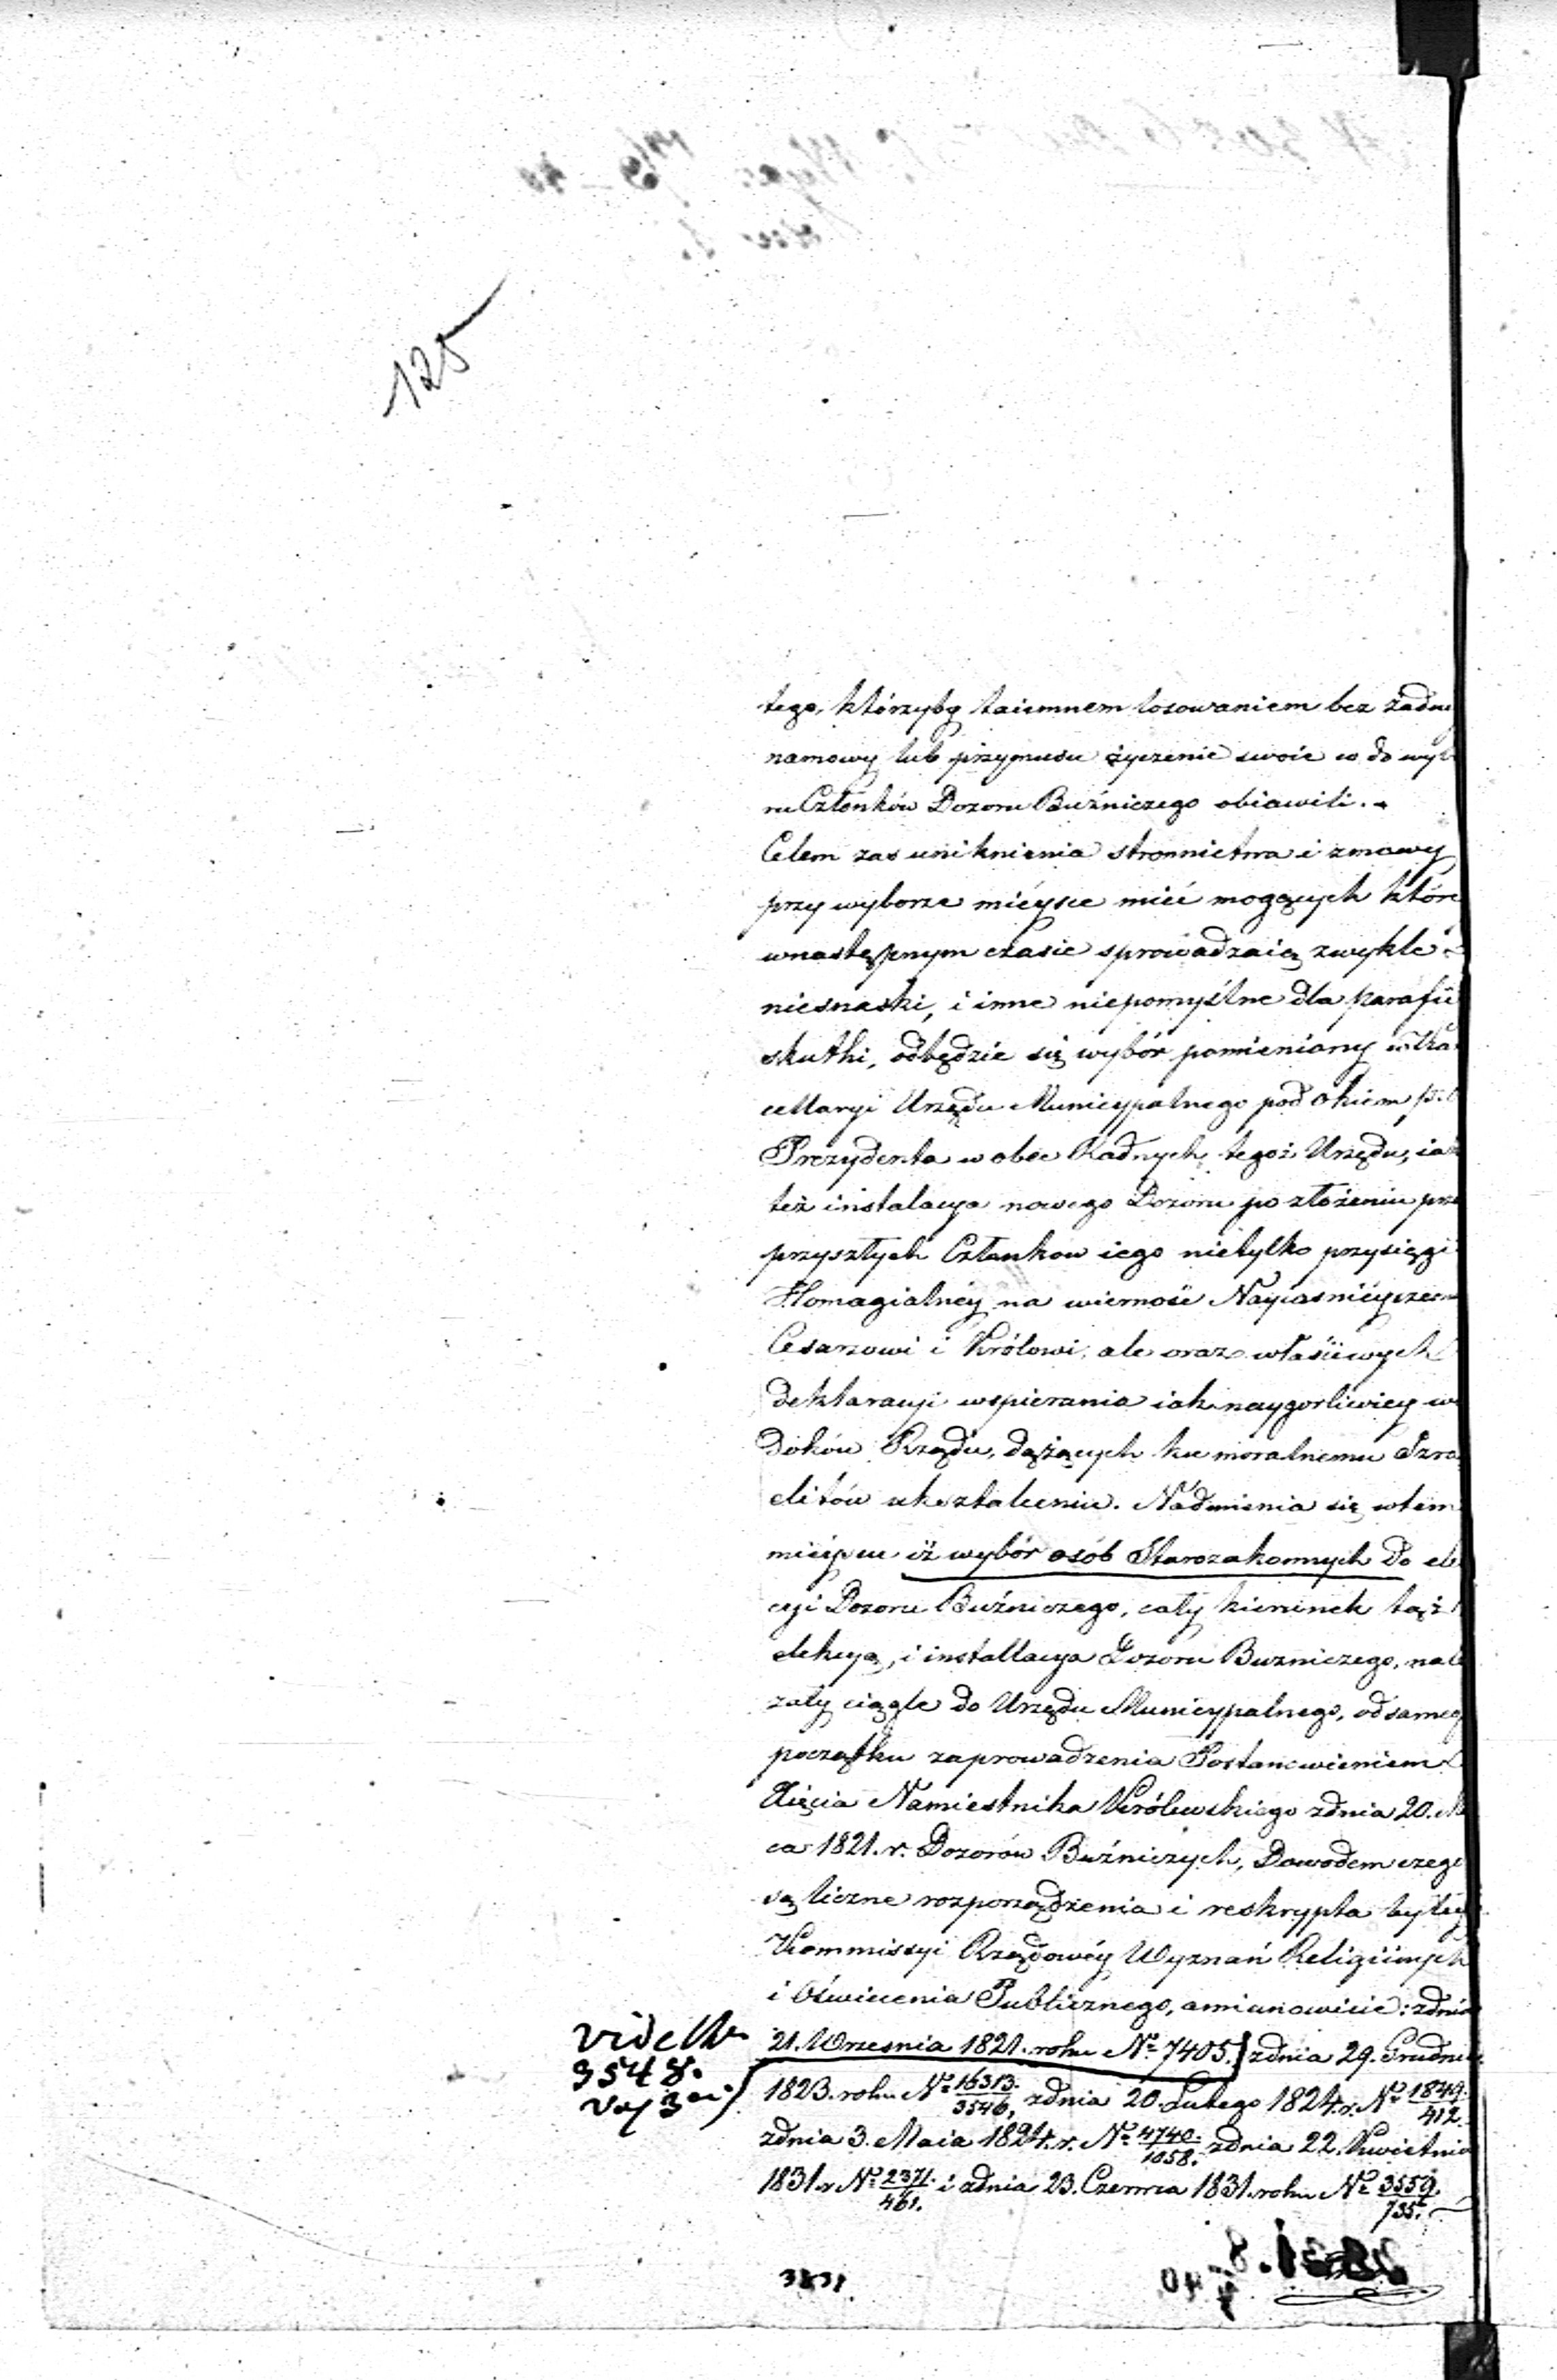 125
tego, którzyby taiemnem losowaniem bez żadne
namowy lub przymusu życzenie swoie co do wyb
ru Członków Dozoru Bużniczego obiawili.
Celem zas uniknienia stronnictwa i zmowy
przy wyborze mieysce mieć mogących które
wnastępnym czasie sprowadzaią zwykle
niesnaski, i inne niepomyślne dla parafii
skutki, odbędzie się wybór pomieniony w Kan
cellaryi Urzędu Municypalnego pod okiem
Prezydenta wobec Radnych tegoż Urzędu, iak
też instalacya nowego Dozoru po złożeniu prze
przyszłych Członkow iego nietylko przysięgi
Homagialnéy na wierność Nayiasnieyszem
Cesarzowi i Królowi, ale oraz właściwych
deklaracyi wspierania iak naygorliwiey wi
doków Rządu, dążących ku moralnemu Izra
elitów ukształceniu. Nadmienia się wtem
mieyscu iż wybór osób Starozakonnych do ele
cyi Dozoru Buźniczego, cały kierunek tąż
elekcyą, i installacya Dozoru Buzniczego, nale
zały ciągle do Urzędu Municypalnego, od sameg
początku zaprowadzenia Postanowieniem
Xięcia Namiestnika Królewskiego zdnia 20. Ma
ca 1821. r. Dozorów Buźniczych, Dowodem czego
są liczne rozporządzenia i reskrypta byłéy
Kommissyi Rządowéy Wyznań Religiinych
i Oświecenia Publicznego, amianowicie: zdnia
21. Wrzesnia 1821. roku Nº 7405. zdnia 29. Grudnia
vide
9548.
1823. roku Nº 16313./3546, zdnia 20. Lutego 1824. r. Nº 1849./412.
zdnia 3. Maia 1824. r. Nº 4740./1058. zdnia 22. Kwietnia
1831. r Nº 2371./461. i zdnia 23. Czerwca 1831. roku Nº 3559./735.